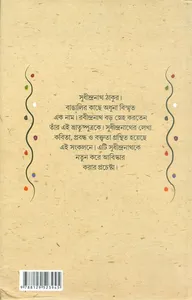 সুধীন্দ্রনাথ ঠাকুর।
বাঙালির কাছে অধুনা বিস্মৃত
এক নাম। রবীন্দ্রনাথ বড় স্নেহ করতেন
তাঁর এই ভ্রাতুষ্পুত্রকে। সুধীন্দ্রনাথের লেখা
কবিতা, প্রবন্ধ ও বক্তৃতা গ্রন্থিত হয়েছে
এই সংকলনে। এটি সুধীন্দ্রনাথকে
নতুন করে আবিষ্কার
করার প্রচেষ্টা।